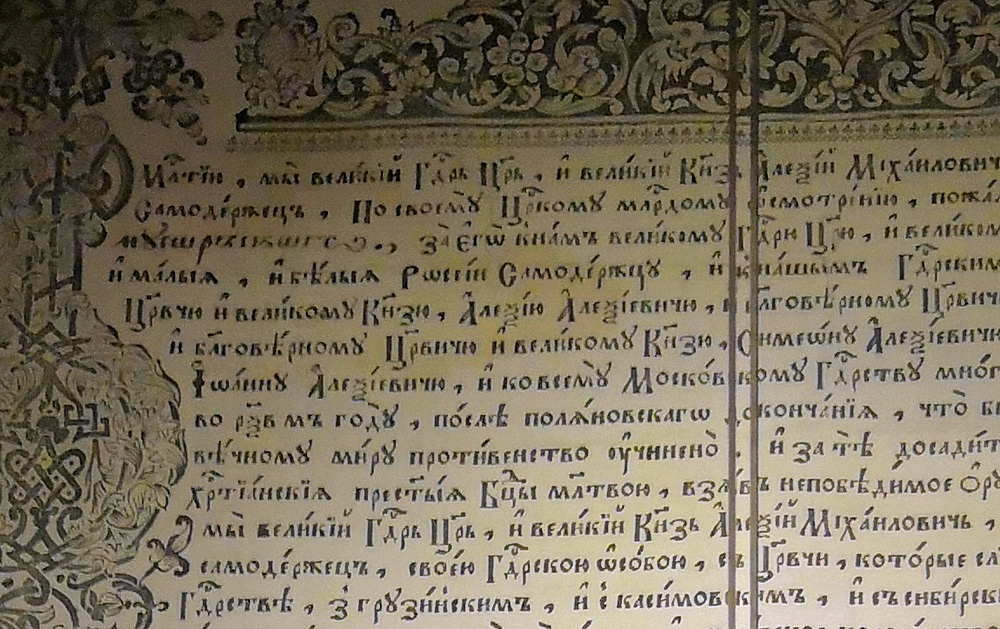 мл҃тїю , мы̀ вели́кїй Гд҃рь Цр҃ь , и҆ вели́кїй Кн҃зь А҆леѯі́й Міха́иловичь
Самоде́ржецъ , По своемꙋ̀ Цр҃комꙋ мл҃рдомꙋ
за̀ є҆гѡ̀ к на́мъ вели́комꙋ Гд҃рю Цр҃ю , и҆ вели́ком
и҆ ма́лыѧ , и҆ бѣ́лыѧ Рѡсі́и Самоде́ржцꙋ , и҆ к на́шымъ Гд҃рским
Цр҃вчю и҆ вели́комꙋ Кн҃зю , А҆леѯі́ю А҆леѯі́евичю , и҆ бл҃говѣ́рномꙋ Цр҃вич
и҆ бл҃говѣ́рномꙋ Цр҃вичю и҆ вели́комꙋ Кн҃зю , Симеѡ́нꙋ А҆леѯі́евичю
І҆ѡа́ннꙋ А҆леѯі́евичю , и҆ ко всемꙋ̀ Моско́вскомꙋ Гд҃рствꙋ мно́г
во рѯ҃в мъ годꙋ̀ , по́слѣ полѧ́новскагѡ докончанїѧ , что̀
вѣ́чномꙋ ми́рꙋ проти́венство ᲂу҆чинено̀ . и҆ за тѣ̀ досади́т
хрⷭ҇тїа́нскїѧ прест҃ы́ѧ Бц҃ы мл҃твою , взѧ́въ непобѣди́мое Ѻ҆рꙋ́
мы̀ вели́кїй Гд҃рь Цр҃ь , и҆ вели́кїй Кн҃зь А҆леѯі́й Міха́иловичь ,
самоде́ржецъ , свое́ю Гд҃рскою ѡ҆со́бою , съ Цр҃вчи , кото́рые
Гд҃рствѣ , з̾ грꙋзи́нскимъ , и҆ с̾ каси́мовскимъ , и҆ съ сиби́рск